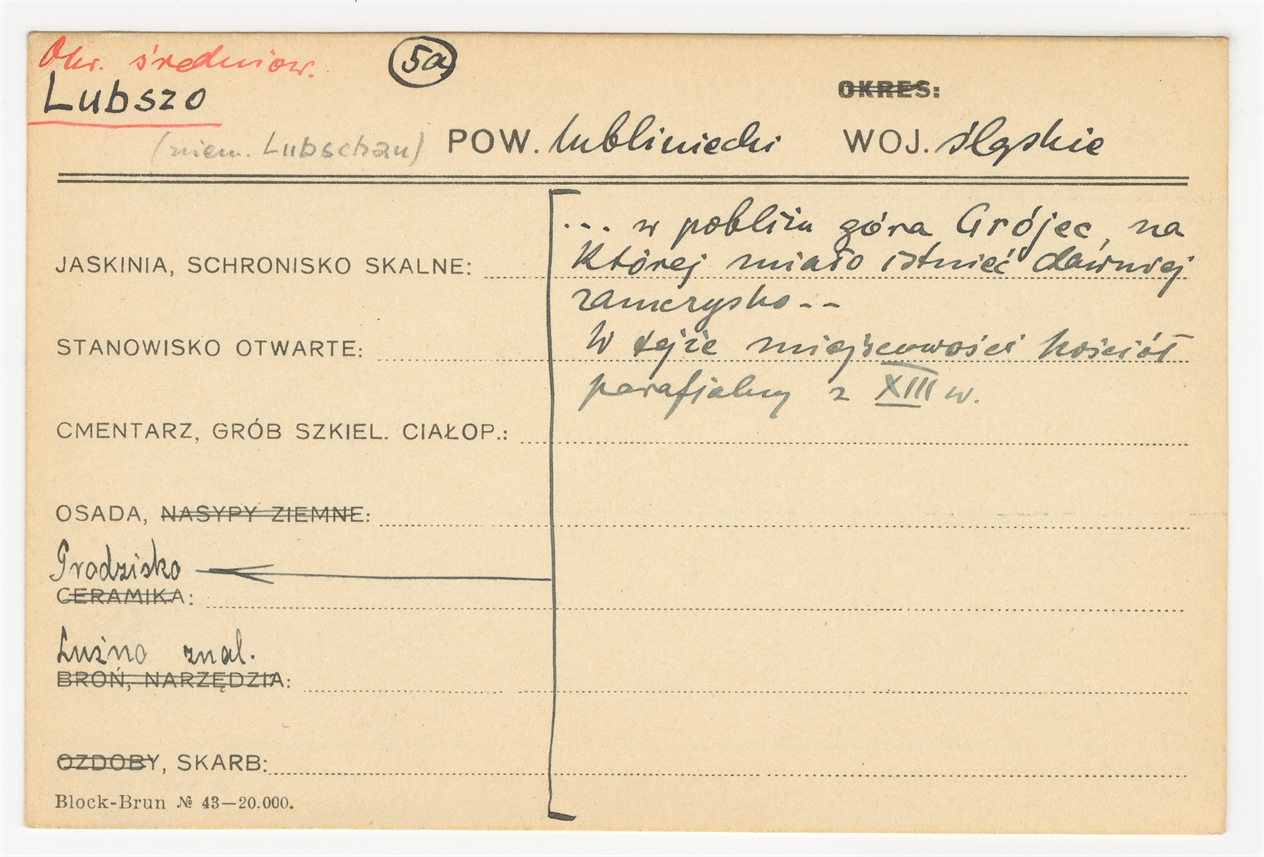 Okr. średniow. 5a
Lubszo OKRES:
(niem. Lubschau) POW. lubliniecki WOJ. śląskie
... w pobliżu góra Grójec, na
JASKINIA, SCHRONISKO SKALNE: której miało istnieć dawniej
zamczysko--
STANOWISKO OTWARTE: W tejże miejscowości kościół
parafialny z XIII w.
CMENTARZ, GRÓB SZKIEL. CIAŁOP.:
OSADA, NASYPY ZIEMNE:
Grodzisko
CERAMIKA:
Luźno znal.
BROŃ, NARZĘDZIA:
OZDOBY, SKARB:
Block-Brun № 43—20.000.